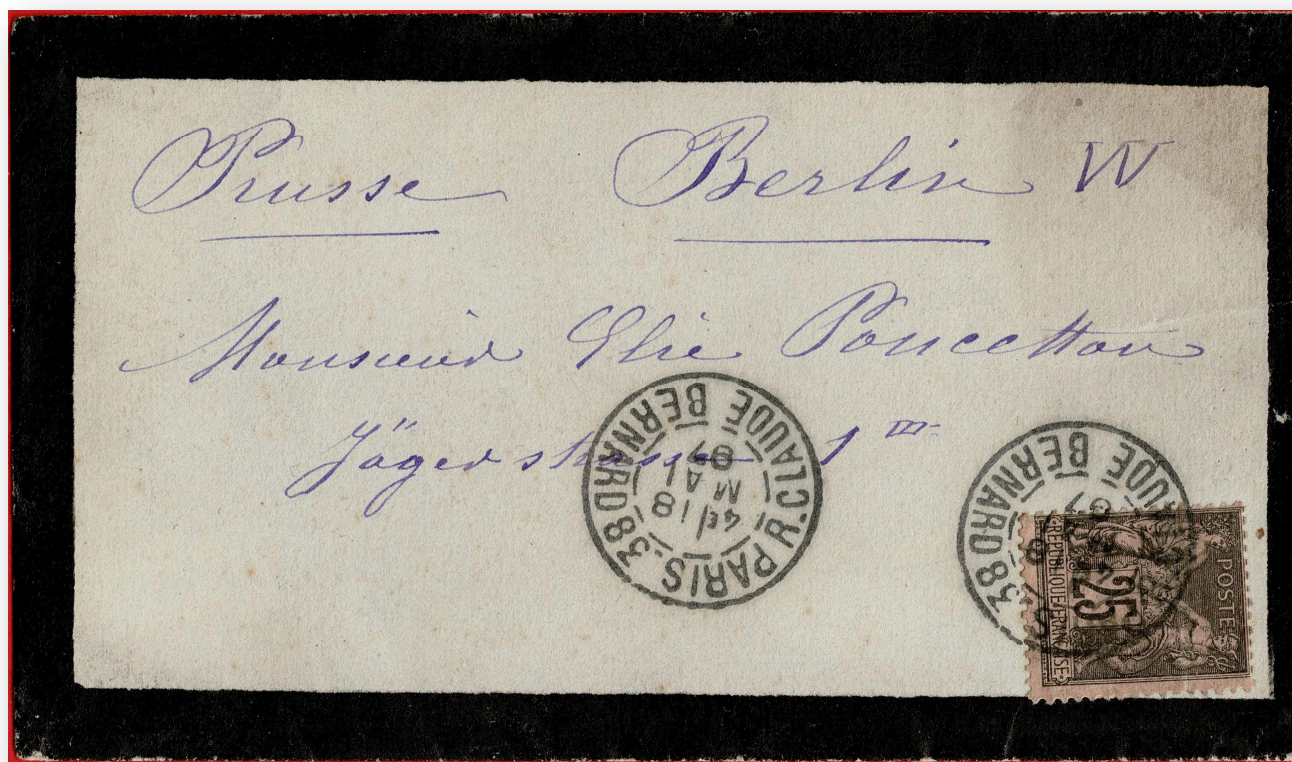 Prusse Berlin W
Monsieur Elie Poncetton
Jägerstrasse 1 III
PARIS 38 R. CLAUDE BERNARD
4E / 18
MAI
97
38 UDE BERNARD
POSTES
25
REPUBLIQUE FRANÇAISE